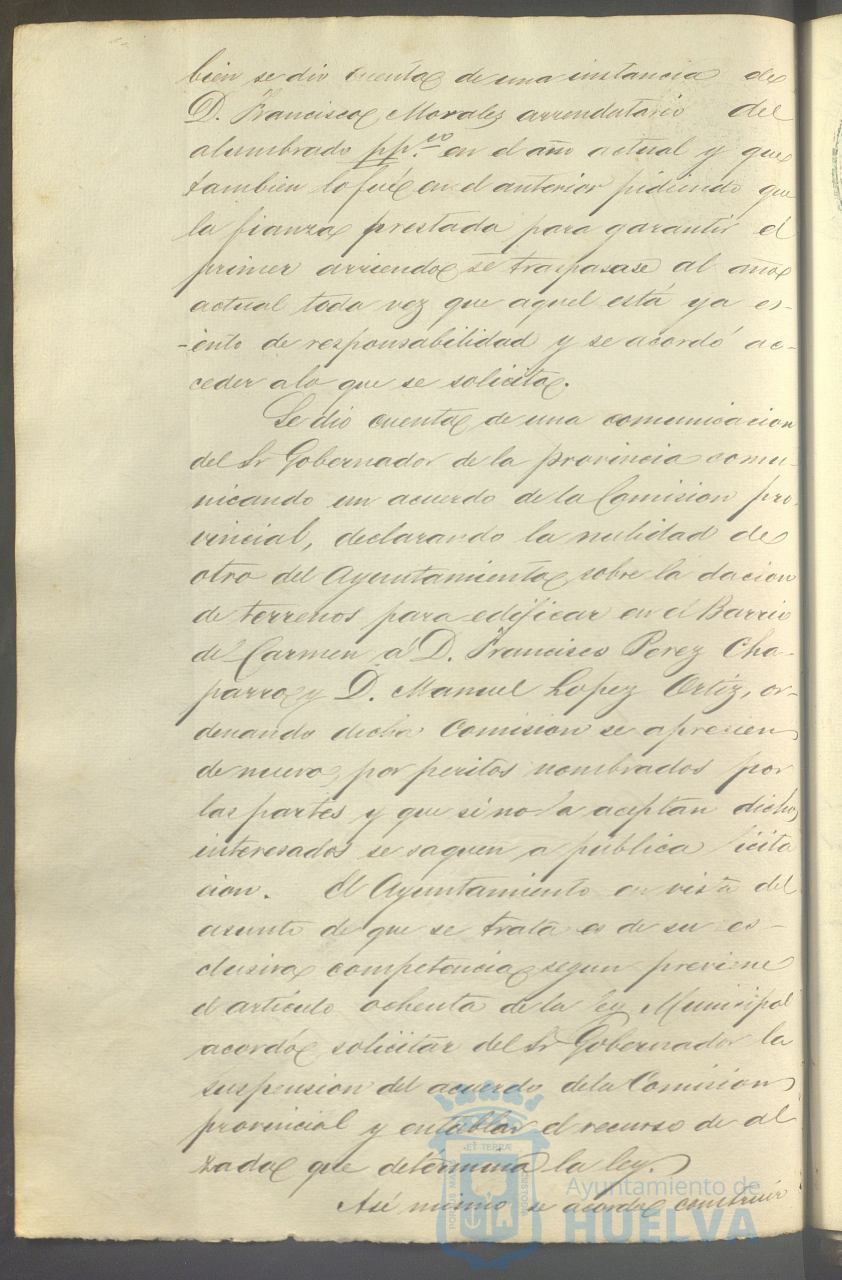 bien se dio cuenta de una instancia de
D. Francisco Morales arrendatario del
alumbrado pp.co en el año actual y que
tambien lo fué en el anterior pidiendo que
la fianza prestada para garantir el
primer arriendo se traspasase al año
actual toda vez que aquel está ya es-
-ento de responsabilidad y se acordó ac-
ceder a lo que se solicita.
Se dió cuenta de una comunicacion
del Sr Gobernador de la provincia comu-
nicando un acuerdo de la Comision pro-
vincial, declarando la nulidad de
otro del Ayuntamiento sobre la dacion
de terrenos para edificar en el Barrio
del Carmen á D. Francisco Perez Cha-
parro y D. Manuel Lopez Ortiz, or-
denando dicha Comision se aprecien
de nuevo por peritos nombrados por
las partes y que si no la aceptan dichos
interesados se saquen a publica licita
cion. El Ayuntamiento en vista del
asunto de que se trata es de su es-
clusiva competencia segun previene
el artículo ochenta de la ley Municipal
acordó solicitar del Sr Gobernador la
suspension del acuerdo de la Comision
provincial y entablar el recurso de al
zada que determina la ley.
Asi mismo se acordo construir
PORTUS MARIS
ET TERRÆ
CUSTODIA
Ayuntamiento de
HUELVA